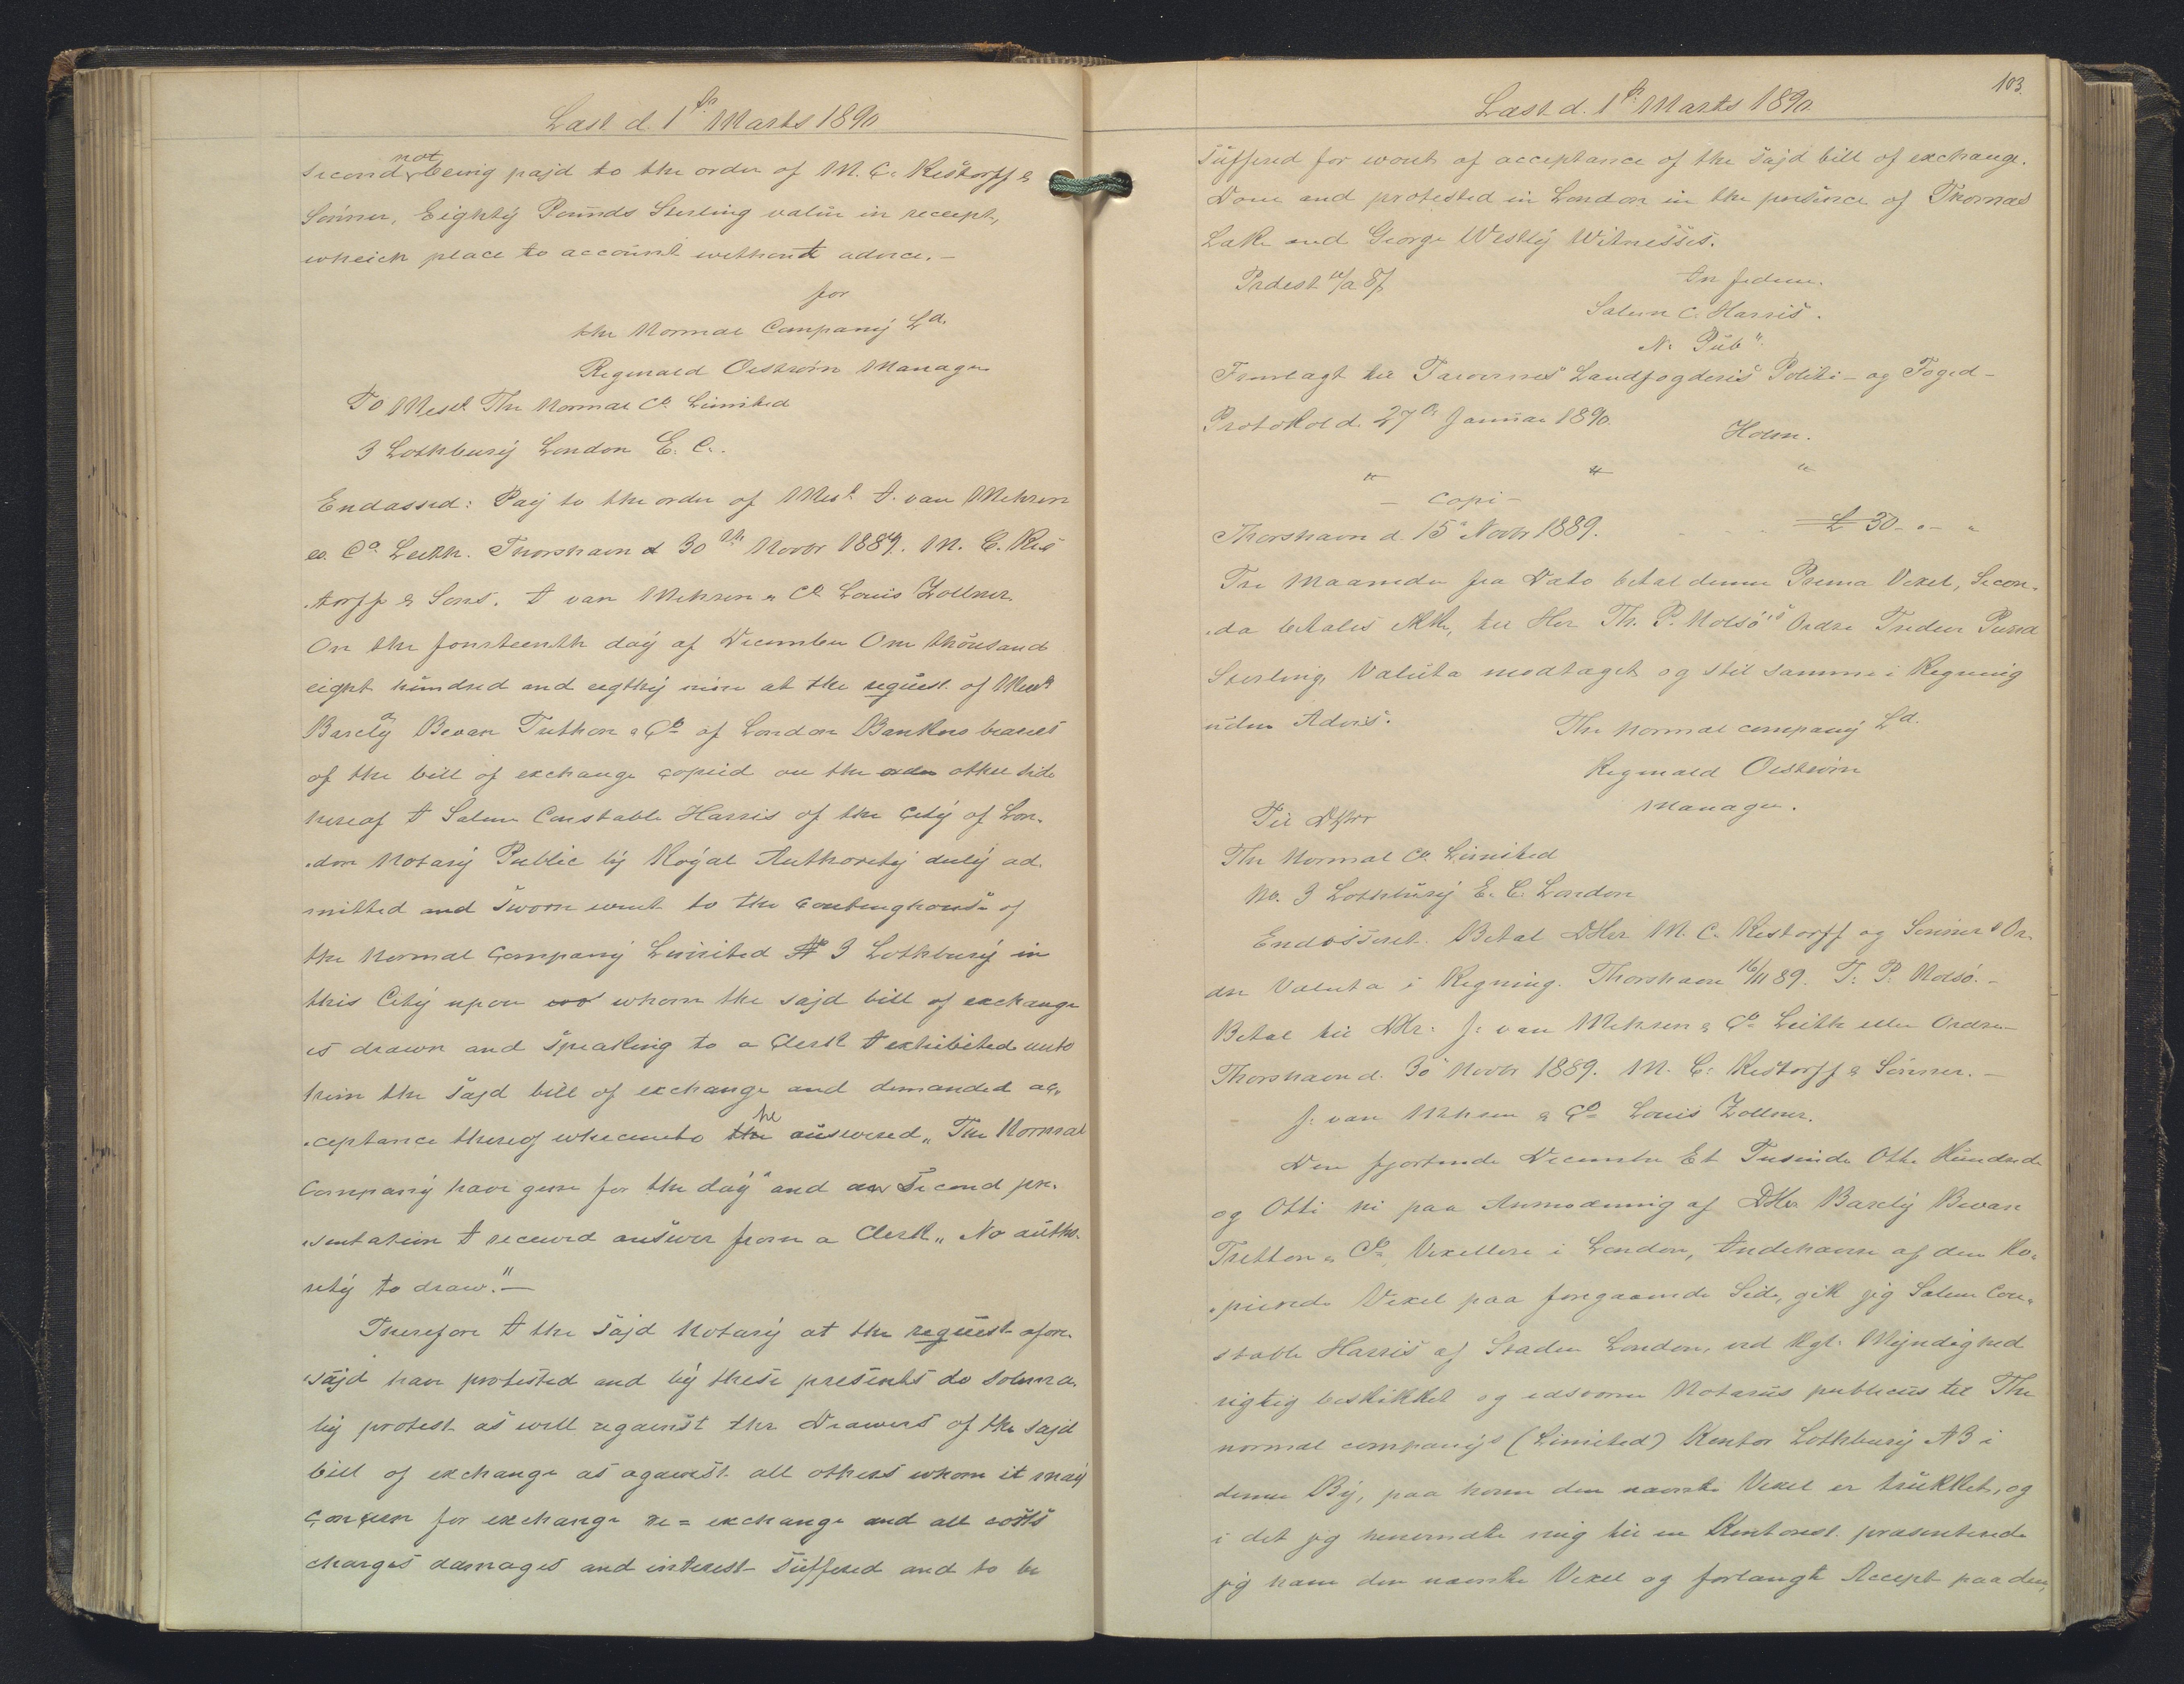 Læst d. 1ste Marts 1890
second not being pajd to the order of M. C. Restorff &
Sönner, Eighty Pounds Sterling value in receipt,
wheich place to account without advice. —
for
the Normal Company Ld.
Reginald Oeström Manager
To Messrs. The Normal Co. Limited
3 Lothbury London E. C.
Endassed: Pay to the order of Messr. J. van Mehren
es. Co. Leith. Thorshavn d 30th Novbr 1889. M. C. Res
torff & Sons. J van Mehren & Co Louis Zollner.
On the fourteenth day of December One thousand
eight hundred and eigthy nine at the request of Messrs
Barcly Bevan Tritton & Co of London Bankers bearers
of the bill of exchange copied on the other side
hereof I Salem Constable Harris of the City of Lon-
don Notary Public by Royal Authority duly ad
mitted and sworn went to the Countinghouse of
the Normal Company Limited No 3 Lothbury in
this City upon whom the sajd bill of exchange
is drawn and speaking to a Clerk I exhibited unto
him the sajd bill of exchange and demanded ac-
ceptance thereof whereunto he answered "The Normal
Company have gone for the day" and an second pre-
sentation I received answer from a Clerk "No autho-
rity to draw." —
Therefore I the sajd Notary at the request afore-
sajd have protested and by these presents do solemn
ly protest as well against the Drawers of the sajd
bill of exchange as against all others whom it may
concern for exchange re = exchange and all costs
charges damages and interest suffered and to be
103.
Læst d. 1ste Marts 1890.
suffered for want of acceptance of the sajd bill of exchange.
Done and protested in London in the presence of Thomas
Lake and George Westly Witnesses.
In fidem.
Salem C. Harris.
N. Pub".
Fremlagt til Færøernes Landfogderis Politi- og Foged-
Protokol d. 27de Januar 1890.
Holm.
— Copi —
Thorshavn d. 15' Novbr 1889.
£ 30 - " - "
Tre Maaneder fra Dato betal denne Prima Vexel, Secon-
da betales ikke, til Her Th. P. Nolsö's Ordre Tredive Pund
Sterling, Valuta modtaget og stil samme i Regning
uden Advis.
The Normal company Ld.
Reginald Oeström
Manager.
Til DHrr
The Normal Co. Limited
No. 3 Lothbury E. C. London
Endosseret. Betal DHer M. C. Restorff og Sönner's Or-
dre Valuta i Regning. Thorshavn 16/11 89. T. P. Nolsö. —
Betal til DHr. J. van Mehren & Co Leith eller Ordre
Thorshavn d. 30 Novbr 1889. M. C. Restorff & Sönner. —
J. van Mehren & Co Louis Zollner.
Den fjortende December Et Tusinde Otte Hundrede
og Otti ni paa Anmodning af DHer Barcly Bevan
Tritton & Co, Vexellere i London, Indehavere af den Ko-
pierede Vexel paa foregaaende Side, gik jeg Salem Con-
stable Harris af Staden London, ved kgl. Myndighed
rigtig beskikket og edsvoren Notarius publicus til The
normal company's (Limited) Kontor Lothbury No 3 i
denne By, paa hvem den nævnte Vexel er trukket, og
i det jeg henvendte mig til en Kontorist præsenterede
jeg ham den nævnte Vexel og forlangte Accept paa den,